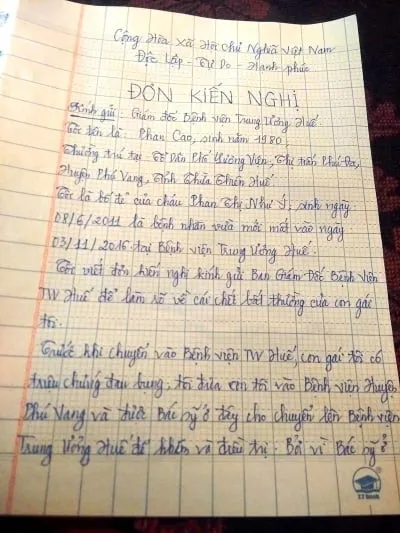 Cộng Hòa Xã Hội Chủ Nghĩa Việt Nam
Độc Lập - Tự Do - Hạnh phúc
ĐƠN KIẾN NGHỊ
Kính gửi: Giám đốc Bệnh viện Trung Ương Huế
Tôi tên là: Phan Cao, sinh năm 1980,
Thường trú tại: Tổ dân Phố Vương Viên, Thị trấn Phú Đa,
Huyện Phú Vang, Tỉnh Thừa Thiên Huế
Tôi là bố đẻ của cháu Phan Thị Như Ý, sinh ngày
08/6/2011 là bệnh nhân vừa mới mất vào ngày
03/11/2016 tại Bệnh viện Trung Ương Huế.
Tôi viết đơn kiến nghị kính gửi Ban Giám Đốc Bệnh Viện
TW Huế để làm rõ về cái chết bất thường của con gái
tôi.
Trước khi chuyển vào Bệnh viện TW Huế, con gái tôi có
triệu chứng đau bụng, tôi đưa con tôi vào Bệnh viện Huyện
Phú Vang và được Bác sỹ ở đây cho chuyển lên Bệnh viện
Trung Ương Huế để khám và điều trị. Bởi vì Bác sỹ ở